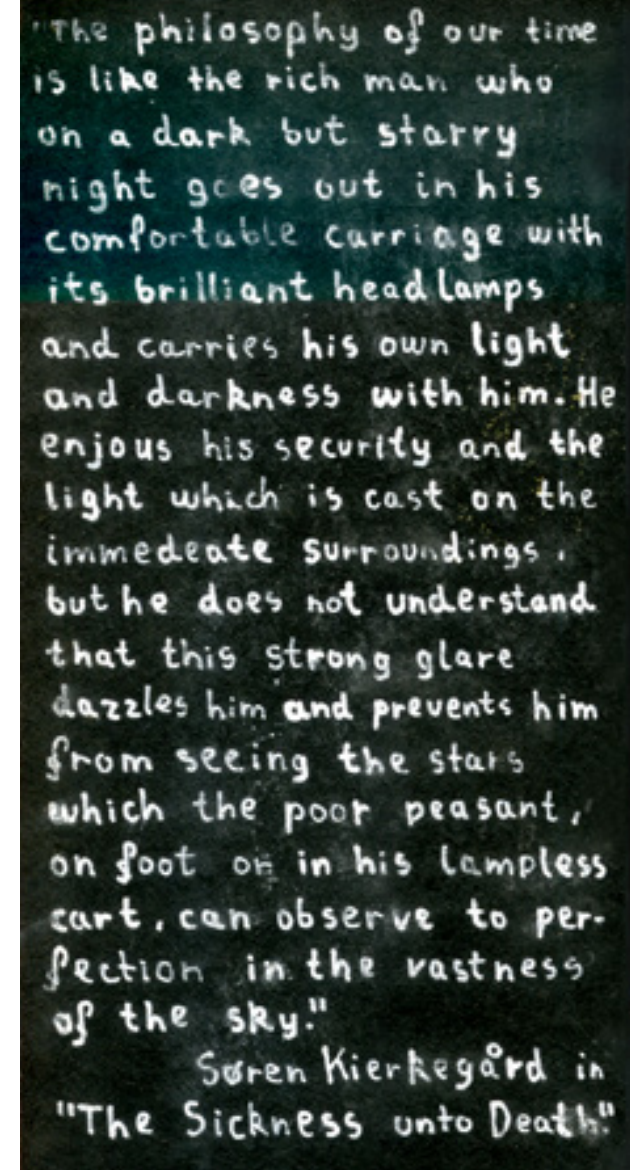 "The philosophy of our time
is like the rich man who
on a dark but starry
night goes out in his
comfortable carriage with
its brilliant head lamps
and carries his own light
and darkness with him. He
enjous his security and the
light which is cast on the
immedeate surroundings,
but he does not understand
that this strong glare
dazzles him and prevents him
from seeing the stars
which the poor peasant,
on foot or in his lampless
cart, can observe to per-
fection in the vastness
of the sky."
Søren Kierkegård in
"The Sickness unto Death"